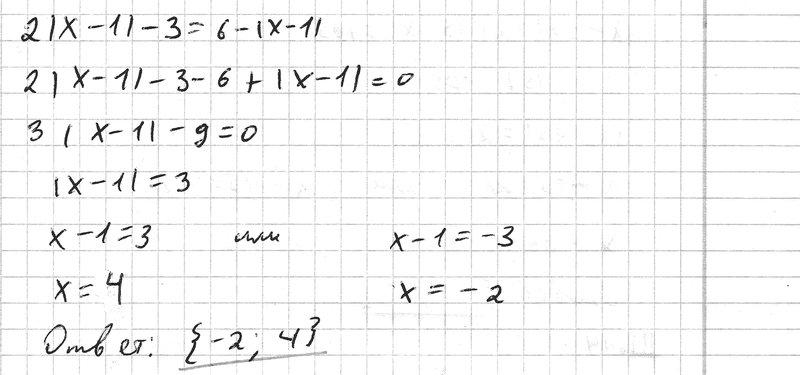 2|x-1|-3=6-|x-1|
2|x-1|-3-6+|x-1|=0
3|x-1|-9=0
|x-1|=3
x-1=3 или x-1=-3
x=4 x=-2
Ответ: {-2; 4}